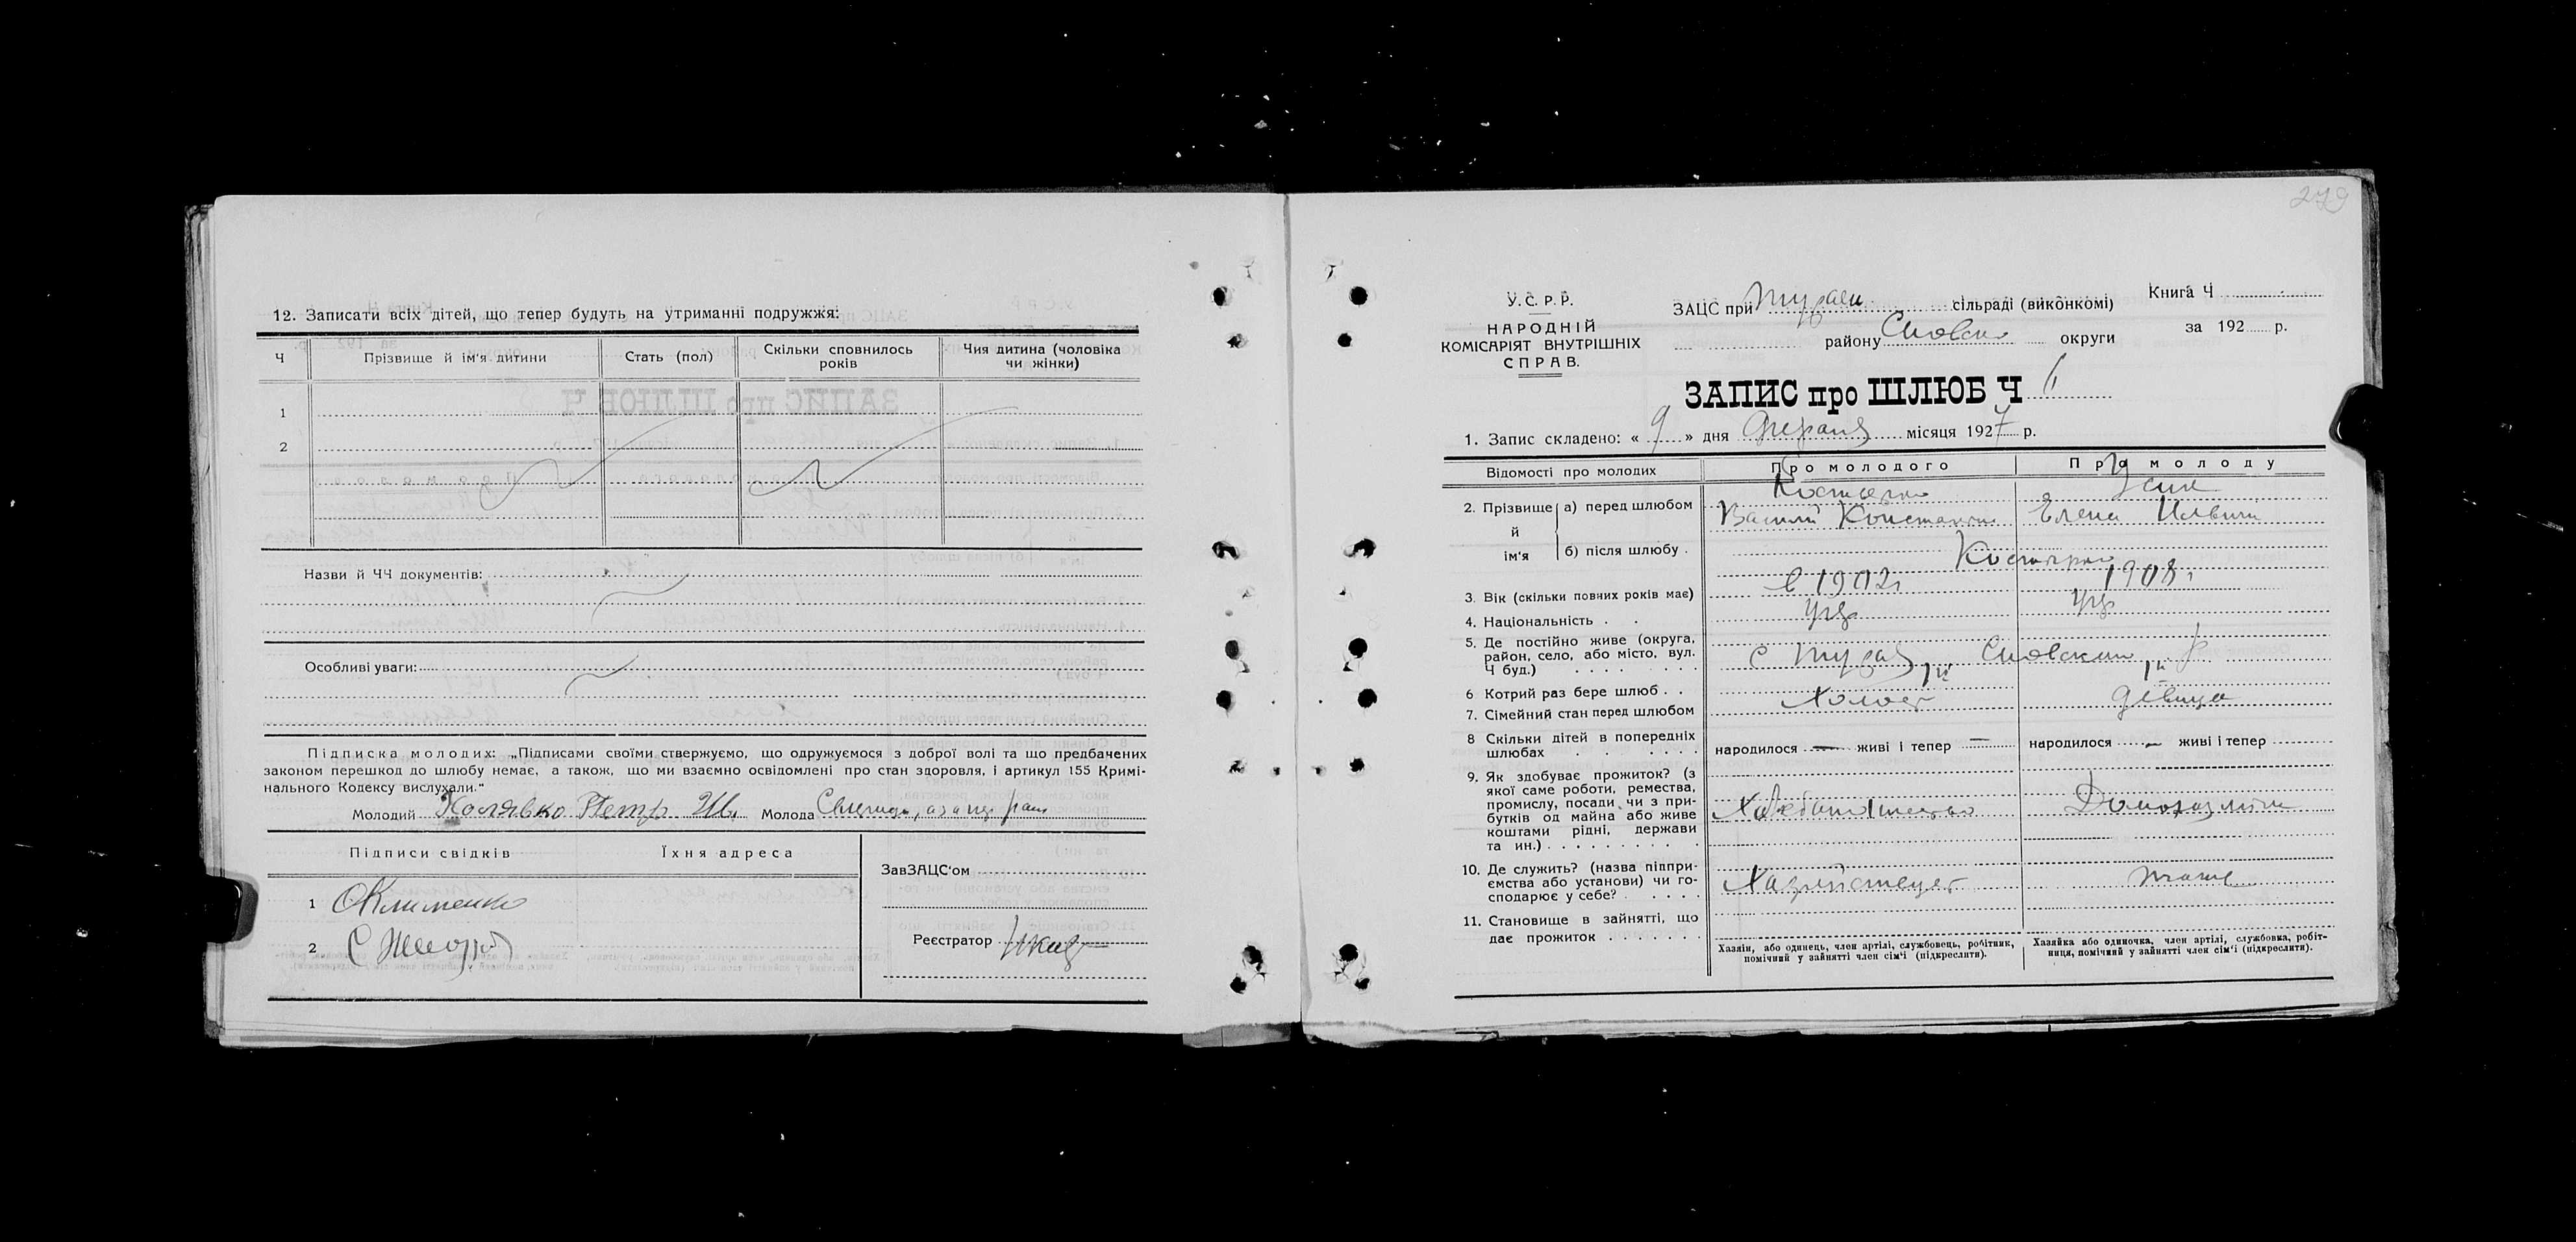 12. Записати всіх дітей, що тепер будуть на утриманні подружжя:
Ч Прізвище й ім'я дитини Стать (пол) Скільки сповнилось років Чия дитина (чоловіка чи жінки)
1
2
Назви й ЧЧ документів:
Особливі уваги:
Підписка молодих: „Підписами своїми стверджуємо, що одружуємося з доброї волі та що предбачених
законом перешкод до шлюбу немає, а також, що ми взаємно освідомлені про стан здоровля, і артикул 155 Кримі-
нального Кодексу вислухали."
Молодий Холявко Петр Ив. Молода
Підписи свідків Їхня адреса
ЗавЗАЦС'ом
1 Клименко
2
Реєстратор
279
У.С.Р.Р.
НАРОДНІЙ
КОМІСАРІЯТ ВНУТРІШНІХ
СПРАВ.
ЗАЦС при сільраді (виконкомі)
району Сновско округи
Книга Ч
за 192 р.
ЗАПИС про ШЛЮБ Ч 6
1. Запис складено: « 9 » дня місяця 1927 р.
Відомості про молодих Про молодого Про молоду
2. Прізвище й ім'я
а) перед шлюбом
Василий Константин Елена
б) після шлюбу
3. Вік (скільки повних років має) 1902 г 1908 г
4. Національність . . укр укр
5. Де постійно живе (округа,
район, село, або місто, вул.
Ч буд.) с Сновский р
6 Котрий раз бере шлюб . . 1й 1й
7. Сімейний стан перед шлюбом Холост девица
8 Скільки дітей в попередніх
шлюбах народилося — живі і тепер — народилося — живі і тепер
9. Як здобуває прожиток? (з
якої саме роботи, ремества,
промислу, посади чи з при-
бутків од майна або живе
коштами рідні, держави
та ин.)
Хлебопашество
10. Де служить? (назва піппри-
ємства або установи) чи го-
сподарює у себе?
11. Становище в зайнятті, що
дає прожиток
Хазяїн, або одинець, член артілі, службовець, робітник,
помічний у зайнятті член сім'ї (підкреслити).
Хазяйка або одиночка, член артілі, службовка, робіт-
ниця, помічний у зайнятті член сім'ї (підкреслити).